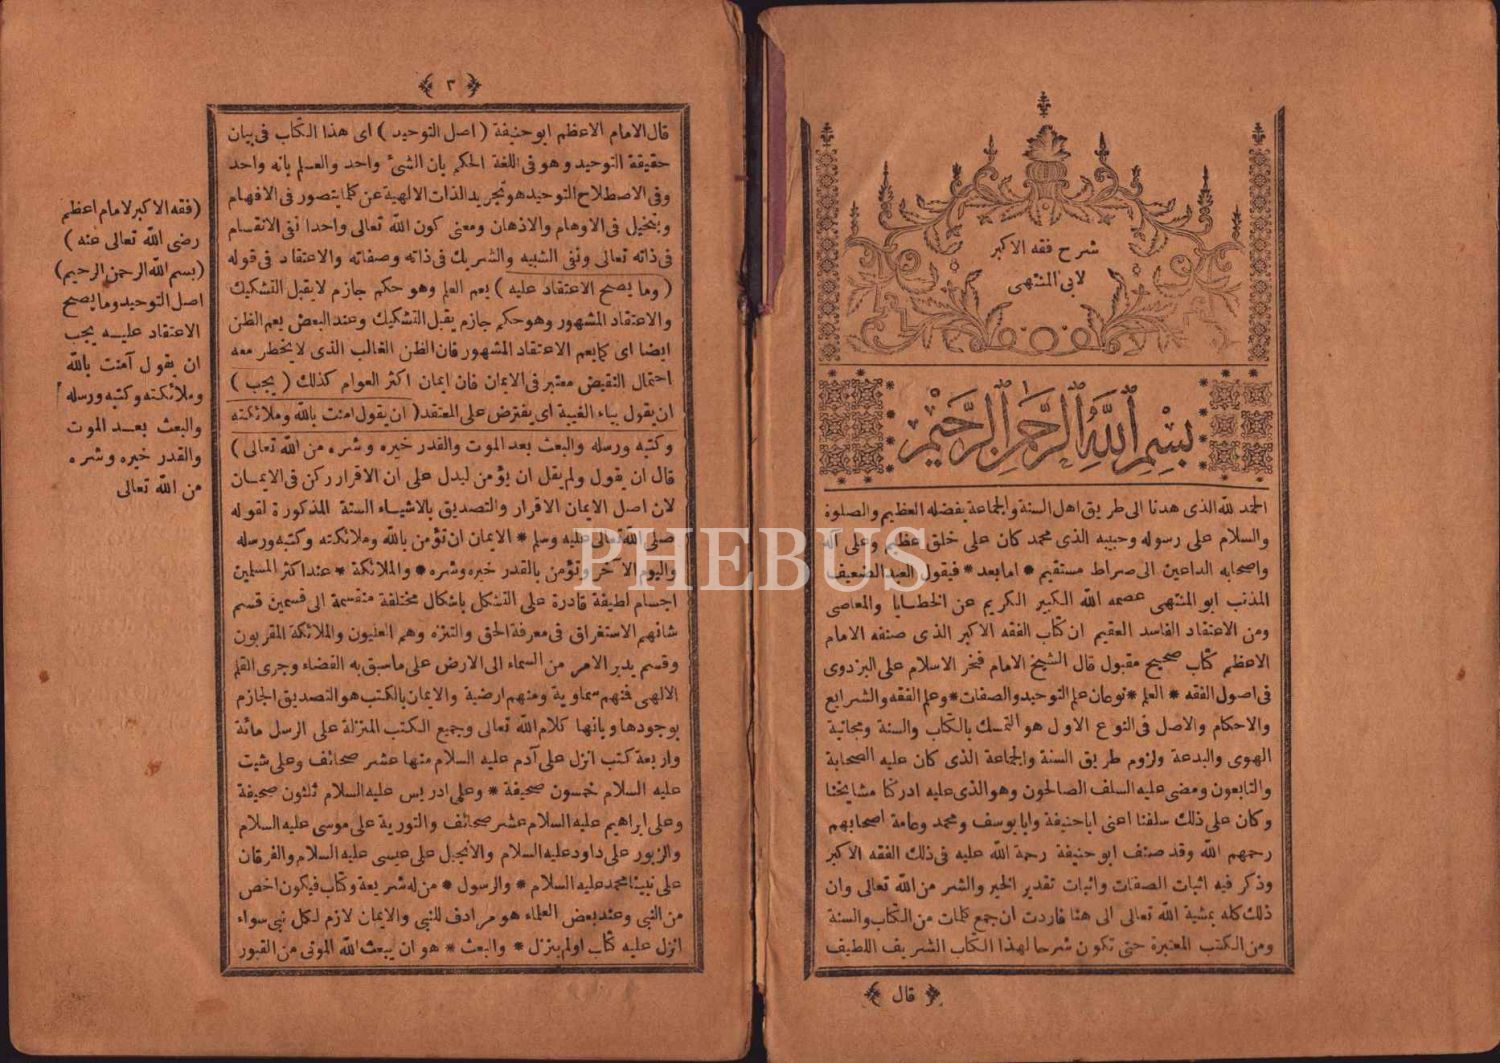 شرح فقه الاكبر
لابى المنتهى
بسم الله الرحمن الرحيم
الحمد لله الذى هدنا الى طريق اهل السنة والجماعة بفضله العظيم والصلوة
والسلام على رسوله وحبيبه الذى محمد كان على خلق عظيم وعلى آله
واصحابه الداعين الى صراط مستقيم * اما بعد * فيقول العبد الضعيف
المذنب ابو المنتهى عصمه الله الكبير الكريم عن الخطايا والمعاصى
ومن الاعتقاد الفاسد العقيم ان كتاب الفقه الاكبر الذى صنفه الامام
الاعظم كتاب صحيح مقبول قال الشيخ الامام فخر الاسلام على البزدوى
فى اصول الفقه * العلم * نوعان علم التوحيد والصفات * وعلم الفقه والشرايع
والاحكام والاصل فى النوع الاول هو التمسك بالكتاب والسنة ومجانبة
الهوى والبدعة ولزوم طريق السنة والجماعة الذى كان عليه الصحابة
والتابعون ومضى عليه السلف الصالحون وهو الذى عليه ادركنا مشايخنا
وكان على ذلك سلفنا اعنى اباحنيفة وابايوسف ومحمد وعامة اصحابهم
رحمهم الله وقد صنف ابو حنيفة رحمة الله عليه فى ذلك الفقه الاكبر
وذكر فيه اثبات الصفات واثبات تقدير الخير والشر من الله تعالى وان
ذلك كله بمشية الله تعالى الى هنا فاردت ان جمع كلمات من الكتاب والسنة
ومن الكتب المعتبرة حتى تكون شرحا لهذا الكتاب الشريف اللطيف
قال
٣
قال الامام الاعظم ابو حنيفة ( اصل التوحيد ) اى هذا الكتاب فى بيان
حقيقة التوحيد وهو فى اللغة الحكم بان الشئ واحد والعلم بانه واحد
وفى الاصطلاح التوحيد هو تجريد الذات الالهية عن كل ما يتصور فى الافهام
ويتخيل فى الاوهام والاذهان ومعنى كون الله تعالى واحدا نفى الانقسام
فى ذاته تعالى ونفى الشبيه والشريك فى ذاته وصفاته والاعتقاد فى قوله
( وما يصح الاعتقاد عليه ) يعم العلم وهو حكم جازم لا يقبل التشكيك
والاعتقاد المشهور وهو حكم جازم يقبل التشكيك وعند البعض يعم الظن
ايضا اى كما يعم الاعتقاد المشهور فان الظن الغالب الذى لا يخطر معه
احتمال النقيض معتبر فى الايمان فان ايمان اكثر العوام كذلك ( يجب )
ان يقول بياء الغيبة اى يفترض على المعتقد ( ان يقول امنت بالله وملائكته
وكتبه ورسله والبعث بعد الموت والقدر خيره وشره من الله تعالى )
قال ان يقول ولم يقل ان يؤمن ليدل على ان الاقرار ركن فى الايمان
لان اصل الايمان الاقرار والتصديق بالاشياء الستة المذكورة لقوله
صلى الله تعالى عليه وسلم * الايمان ان تؤمن بالله وملائكته وكتبه ورسله
واليوم الآخر وتؤمن بالقدر خيره وشره * والملائكة * عند اكثر المسلمين
اجسام لطيفة قادرة على التشكل باشكال مختلفة منقسمة الى قسمين قسم
شانهم الاستغراق فى معرفة الحق والتنزه وهم العليون والملائكة المقربون
وقسم يدبر الامر من السماء الى الارض على ما سبق به القضاء وجرى القلم
الالهى فمنهم سماوية ومنهم ارضية والايمان بالكتب هو التصديق الجازم
بوجودها وبانها كلام الله تعالى وجميع الكتب المنزلة على الرسل مائة
واربعة كتب انزل على آدم عليه السلام منها عشر صحائف وعلى شيث
عليه السلام خمسون صحيفة * وعلى ادريس عليه السلام ثلثون صحيفة
وعلى ابراهيم عليه السلام عشر صحائف والتورية على موسى عليه السلام
والزبور على داود عليه السلام والانجيل على عيسى عليه السلام والفرقان
على نبينا محمد عليه السلام * والرسول * من له شريعة وكتاب فيكون اخص
من النبى وعند بعض العلماء هو مرادف للنبى والايمان لازم لكل نبى سواء
انزل عليه كتاب اولم ينزل * والبعث * هو ان يبعث الله الموتى من القبور
( فقه الاكبر لامام اعظم
رضى الله تعالى عنه )
( بسم الله الرحمن الرحيم )
اصل التوحيد وما يصح
الاعتقاد عليه يجب
ان يقول آمنت بالله
وملائكته وكتبه ورسله
والبعث بعد الموت
والقدر خيره وشره
من الله تعالى
PHEBUS